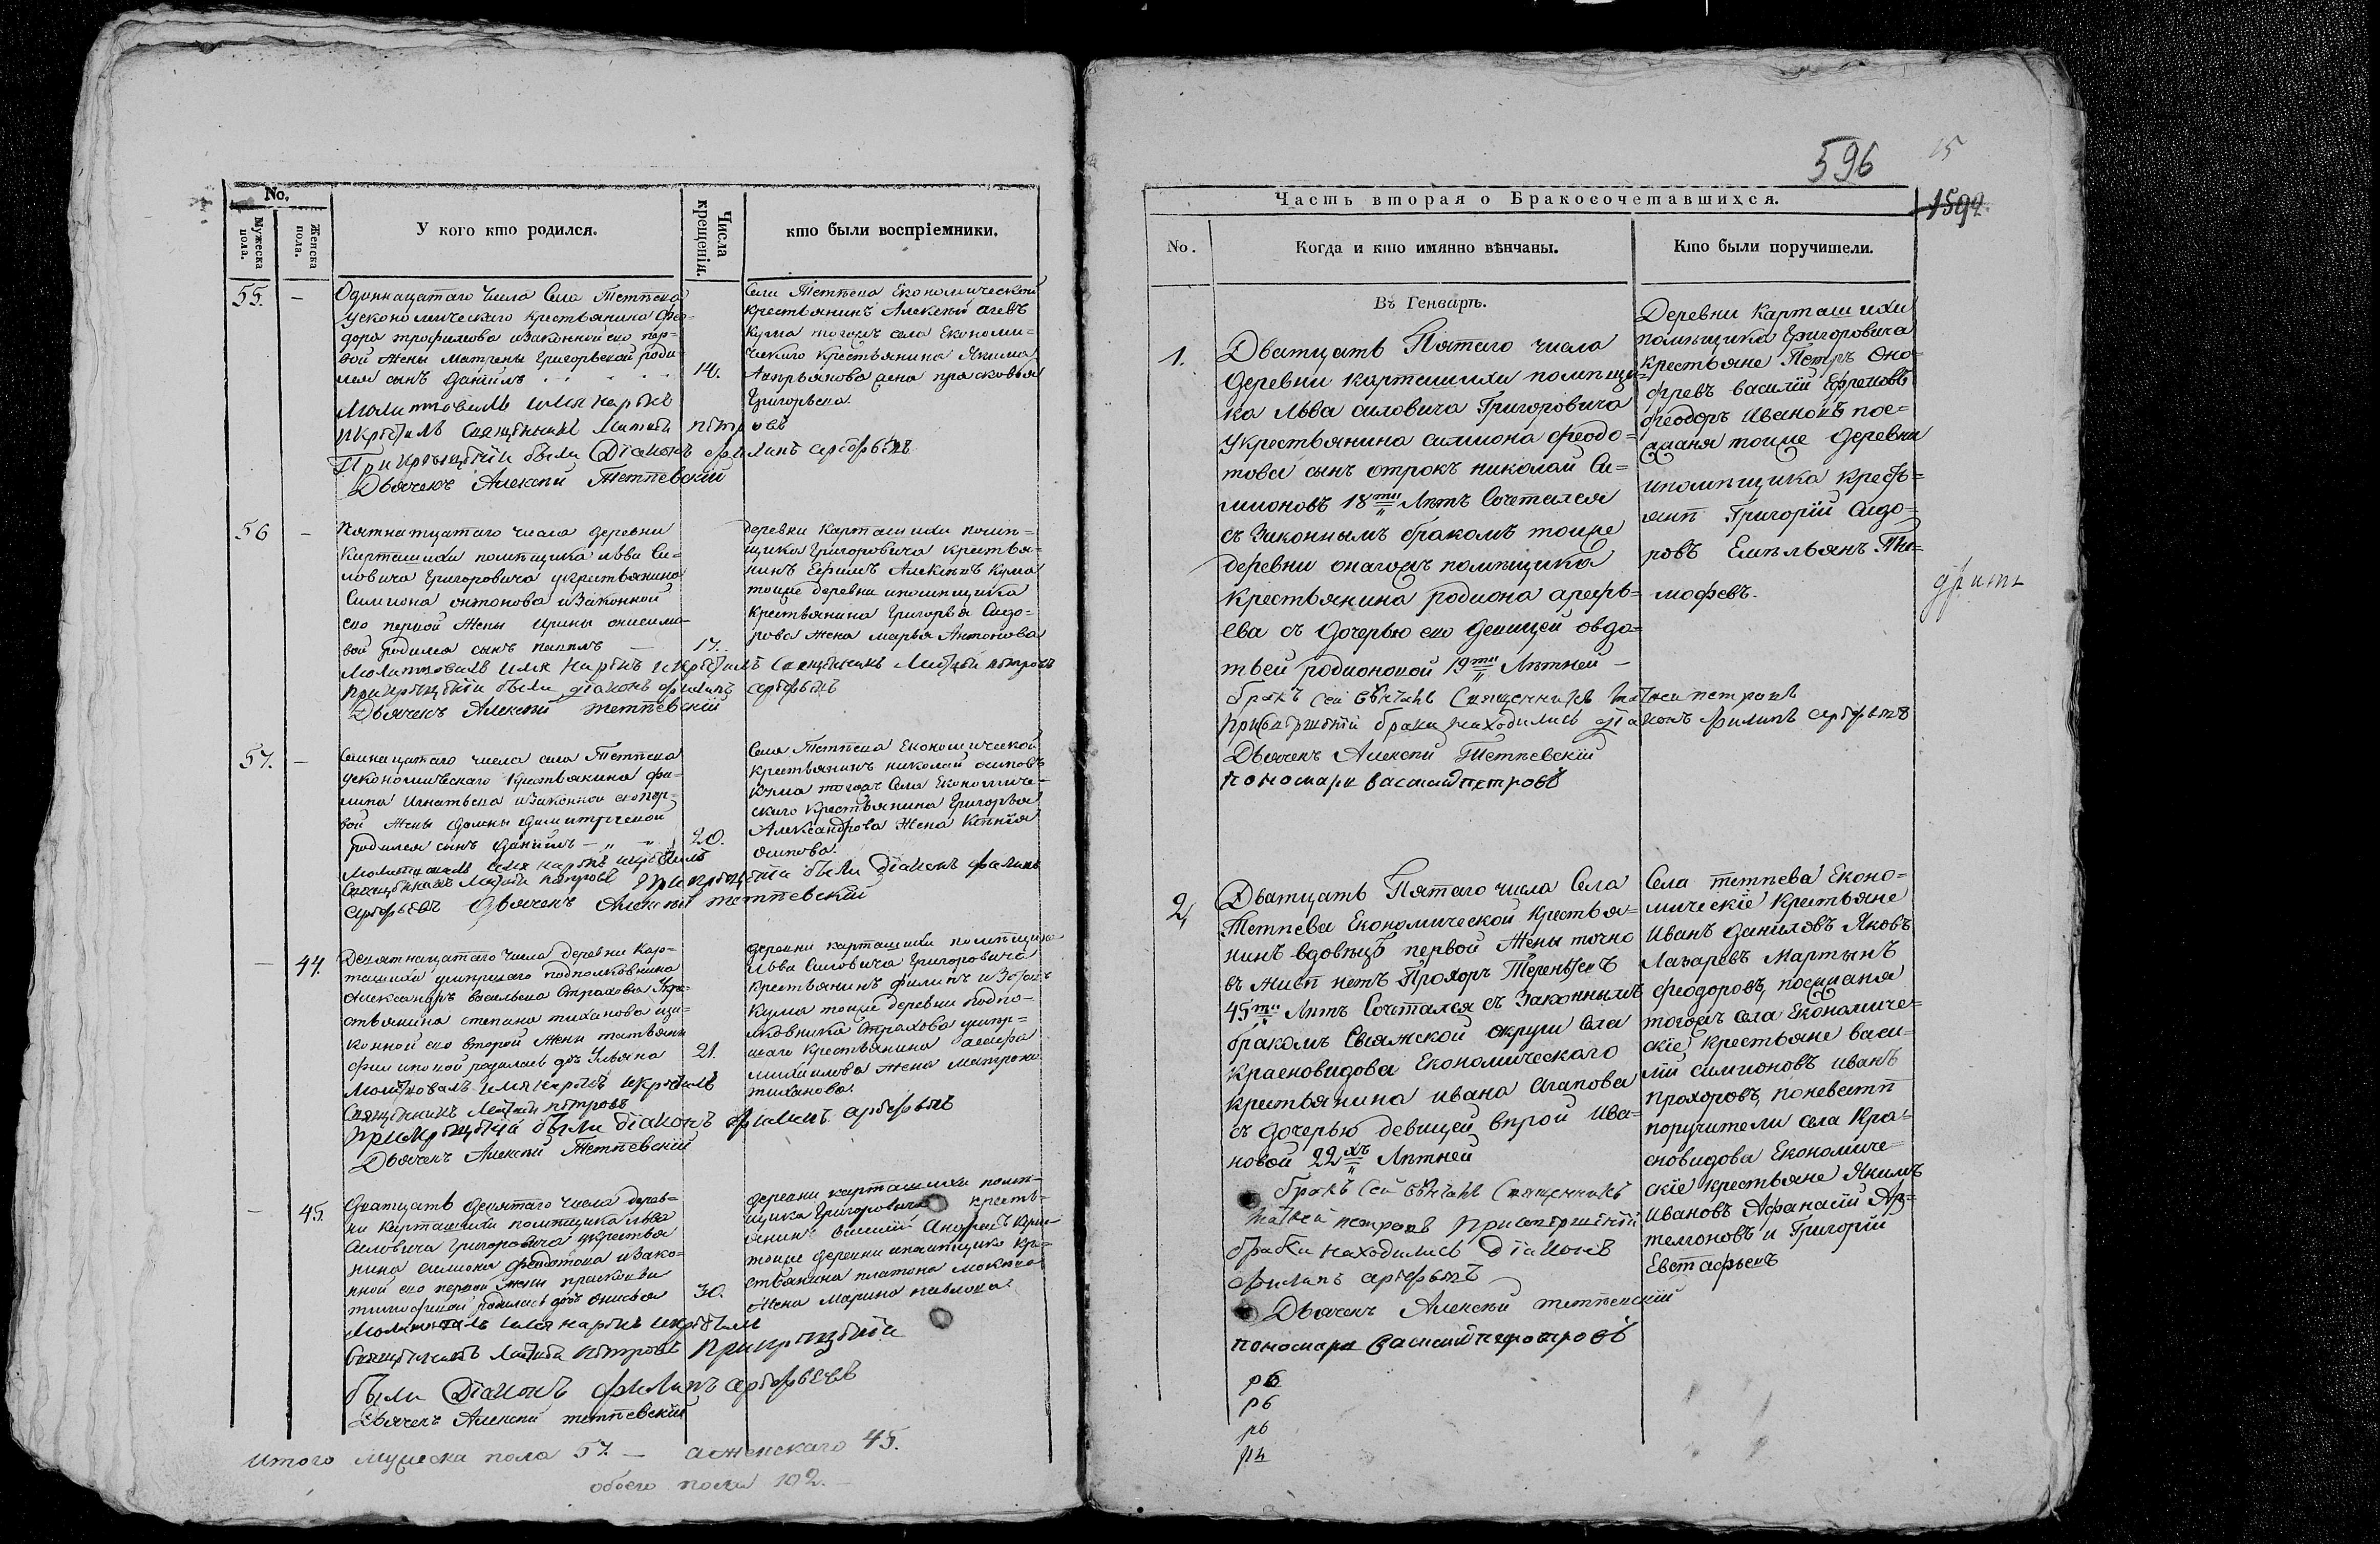 No.
Мужеска пола.
Женска пола.
У кого кто родился.
Числа крещенія.
кто были воспріемники.
55. —
Одиннацатаго числа Села Тетпева
Уекономическаго крестьянина Фео-
дора трофимова изаконной его пер-
вой жены Матрены Григорьевой роди-
лся сынъ Даніилъ
14.
Молитвовалъ имя нарекъ
икрестилъ Священникъ Матвей петровъ
Прикрещеніи были Діаконъ филипъ арефьевъ
Дьячекъ Алексѣй Тетѣевскій
Села Тетѣева Економической
крестьянинъ Алексѣй
кума тогожъ села Економи-
ческаго крестьянина Якима
жена прасковья
Григорьева
56 —
Пятнатцатаго числа деревни
Карташихи помѣщика льва Си-
ловича Григоровича укрестьянина
Симиона онтонова изаконной
его первой жены ирины онисимо-
вой родился сынъ
17.
Молитвовалъ имя нарекъ икрестилъ Священникъ Матвей петровъ
прикрещеніи были діаконъ филипъ арефьевъ
Дьячекъ Алексѣй тетѣевскій
деревни Карташихи помѣ-
щика Григоровича крестья-
нинъ Ефимъ Алексѣевъ кума
тоиже деревни ипомѣщика
крестьянина Григорья Сидо-
рова жена марья Антонова
57. —
Семнацатаго числа села Тетѣева
уекономическаго крестьянина фи-
липа Игнатьева изаконной его пер-
вой жены домны димитріевой
родился сынъ Даніилъ — „ — „
20.
Молитвовалъ имя нарекъ икрестилъ
Священникъ Матвей петровъ прикрещеніи были діаконъ филипъ
арефьевъ Дьячекъ Алексѣй тетѣевскій
Села Тетѣева Економической
крестьянинъ николай осиповъ
кума тогожъ Села Економиче-
скаго крестьянина Григорья
Александрова жена Ксенія
осипова.
— 44.
Девятнацатаго числа деревни Кар-
ташихи умершаго подполковника
Александра васильева Страхова укре-
стьянина степана тиханова иза-
конной его второй жены татьяны
филиповой родилась дочь Ульяна
21.
Молитвовалъ имя нарекъ икрестилъ
Священникъ Матвей петровъ
прикрещеніи были діаконъ филипъ арефьевъ
Дьячекъ Алексѣй Тетѣевскій
деревни карташихи помѣщика
Льва Силовича Григоровича
крестьянинъ филипъ
Кума тоиже деревни подпо-
лковника Страхова умер-
шаго крестьянина
михаилова жена матрона
тиханова.
— 45.
Дватцать Девятаго числа дерев-
ни Карташихи помѣщика льва
Силовича Григоровича укрестья
нина симиона федотова изако-
нной его первой жены прасковьи
тимофеевой родилась дочь Анисья
30.
Молитвовалъ имя нарекъ икрестилъ
Священникъ Матвей петровъ прикрещеніи
были Діаконъ филипъ арефьевъ
Дьячекъ Алексѣй тетѣевскій
деревни карташихи помѣ-
щика Григоровича кресть-
янинъ Василій Андреевъ
тоиже деревни ипомѣщика кре-
стьянина платона
жена Марина павлова.
итого мужеска пола 57. — аженскаго 45.
обоего пола 102. —
596
15
1592.
Часть вторая о Бракосочетавшихся.
No.
Когда и кто имянно вѣнчаны.
Кто были поручители.
Въ Генварѣ.
1.
Дватцать Пятаго числа
Деревни карташихи помѣщи-
ка Льва силовича Григоровича
Укрестьянина симиона феодо-
това сынъ отрокъ николай Си-
мионовъ 18ти лѣтъ Сочетался
съ Законнымъ бракомъ тоиже
деревни онагожъ помѣщика
крестьянина родиона арефь-
ева съ дочерью его девицей овдо-
тьей родионовой 19ти Лѣтней —
бракъ сей вѣнчалъ Священникъ Матвей петровъ
присовершеніи брака находились діаконъ филипъ арефьевъ
Дьячекъ Алексѣй Тетѣевскій
пономарь василий петровъ
Деревни Карташихи
помѣщика Григоровича
крестьяне Петръ Оно-
фревъ василій Ефремовъ
феодоръ Ивановъ пос-
ажаня тоиже деревни
ипомѣщика кресть-
янѣ Григорій Сидо-
ровъ Емельянъ Ти-
мофевъ.
2,
Дватцать Пятаго числа Села
Тетѣева Економической крестья-
нинъ вдовецъ первой жены точно
въ живѣ нетъ Прохоръ Терентьевъ
45ти Лѣтъ Сочетался съ Законнымъ
бракомъ Свияжской округи села
Красновидова Економическаго
крестьянина ивана Агапова
съ дочерью девицей вѣрой Ива-
новой 22хъ Лѣтней
бракъ сей вѣнчалъ Священникъ
Матвей петровъ присовершеніи
брака находились діаконъ
филипъ арефьевъ
Дьячекъ Алексѣй тетѣевскій
пономарь василий петровъ
рб
рб
рб
Села тетѣева Еконо-
мическіе крестьяне
Иванъ даниловъ Яковъ
Лазаревъ Мартынъ
феодоровъ, посажаня
тогожъ села Економиче-
скіе крестьяне васи-
лій симионовъ иванъ
прохоровъ, поневестѣ
поручители села Кра-
сновидова Економиче
скіе крестьяне Якимъ
Ивановъ Афанасій Ар-
темоновъ и Григорій
Евстафьевъ